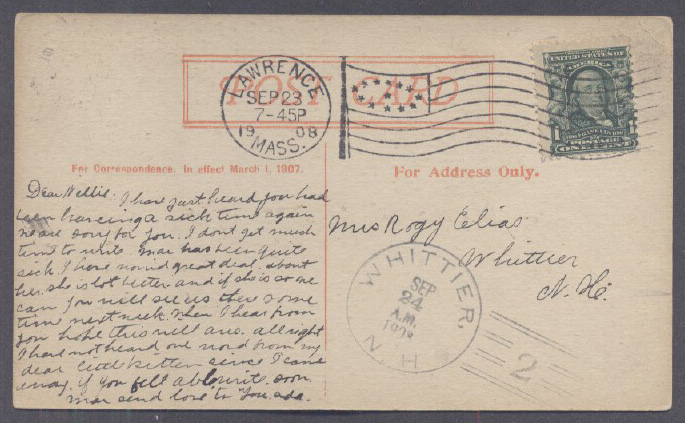 LAWRENCE
SEP 23
7-45P
19 08
MASS.
POST CARD
UNITED STATES OF
AMERICA
1 1
POSTAGE
ONE CENT
For Correspondence. In effect March 1, 1907.
For Address Only.
Dear Nellie. I have just heard you had
been having a sick time again
we are sorry for you. I dont get much
time to write. mae has been quite
sick I have a great deal about
her. she is lot better. and if she is so we
can you will see us there some
time next week. When I hear from
you hope this will all right
I had not heard one word from my
dear little since I came
away. if you fell able write soon.
mae send love to You. ada.
Mrs Elias
Whittier
N. H.
WHITTIER,
SEP
24
A.M.
1908
N H
2